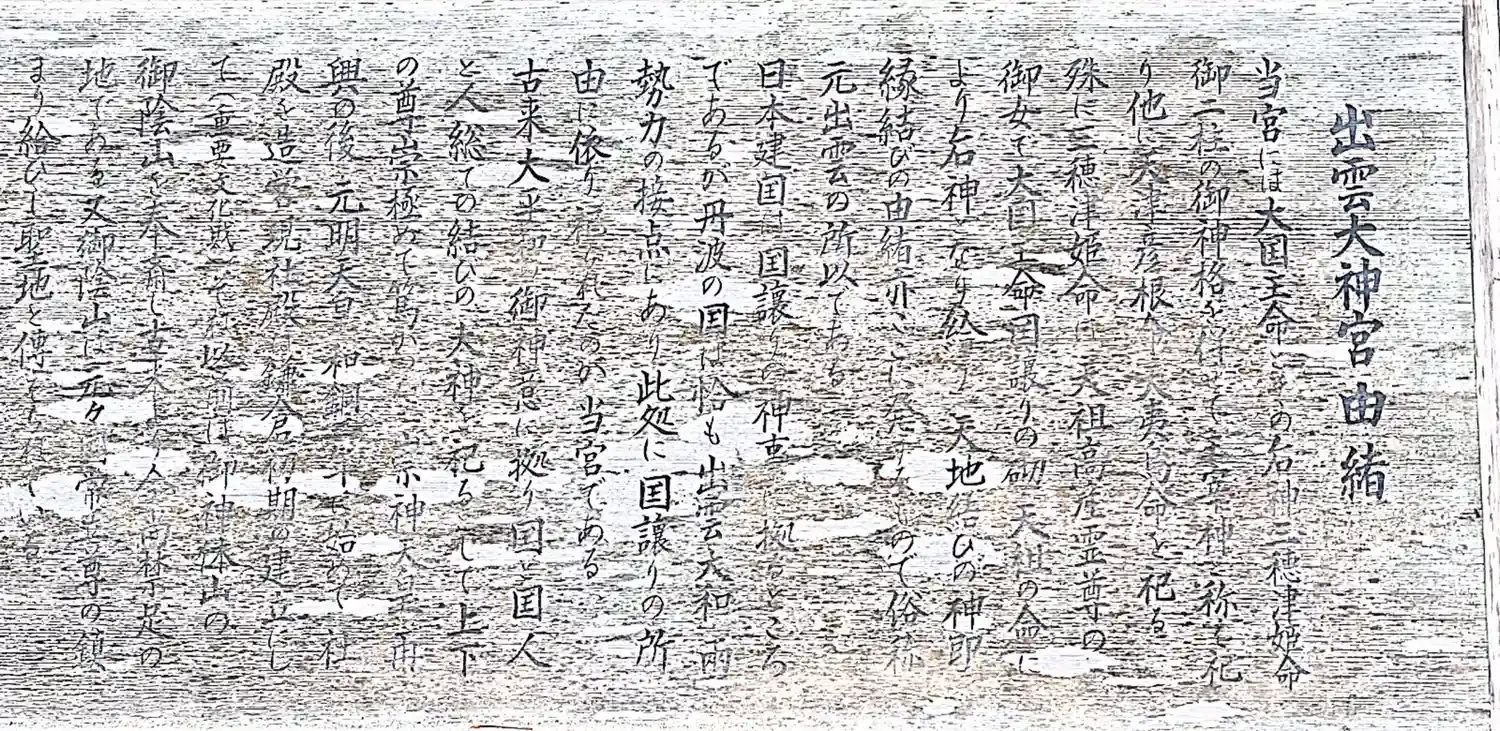 出雲大神宮由緒
当宮には大国主命とその后神三穂津姫命
御二柱の御神格を併せて主宰神と称え祀
り他に天津彦根命 天夷鳥命を祀る
殊に三穂津姫命は天祖高産霊尊の
御女で大国主命国譲りの砌 天祖の命に
より后神となり給う 天地結びの神即
縁結びの由緒亦ここに発するもので俗称
元出雲の所以である
日本建国は国譲りの神事に拠るところ
であるが丹波の国は恰も出雲大和両
勢力の接点にあり此処に国譲りの所
由に依り祀られたのが当宮である
古来大平和の御神意に拠り国と国人
と人総ての結びの大神と祀るして上下
の尊崇極めて篤かつ 崇神天皇再
興の後 元明天皇 和銅 年 始めて社
殿を造営現社殿は鎌倉初期の建立にし
て(重要文化財)それ以前は御神体山の
御陰山を奉斎し古来より今尚禁足の
地である又御陰山は元々国常立尊の鎮
まり給ひし聖地と傳えられている